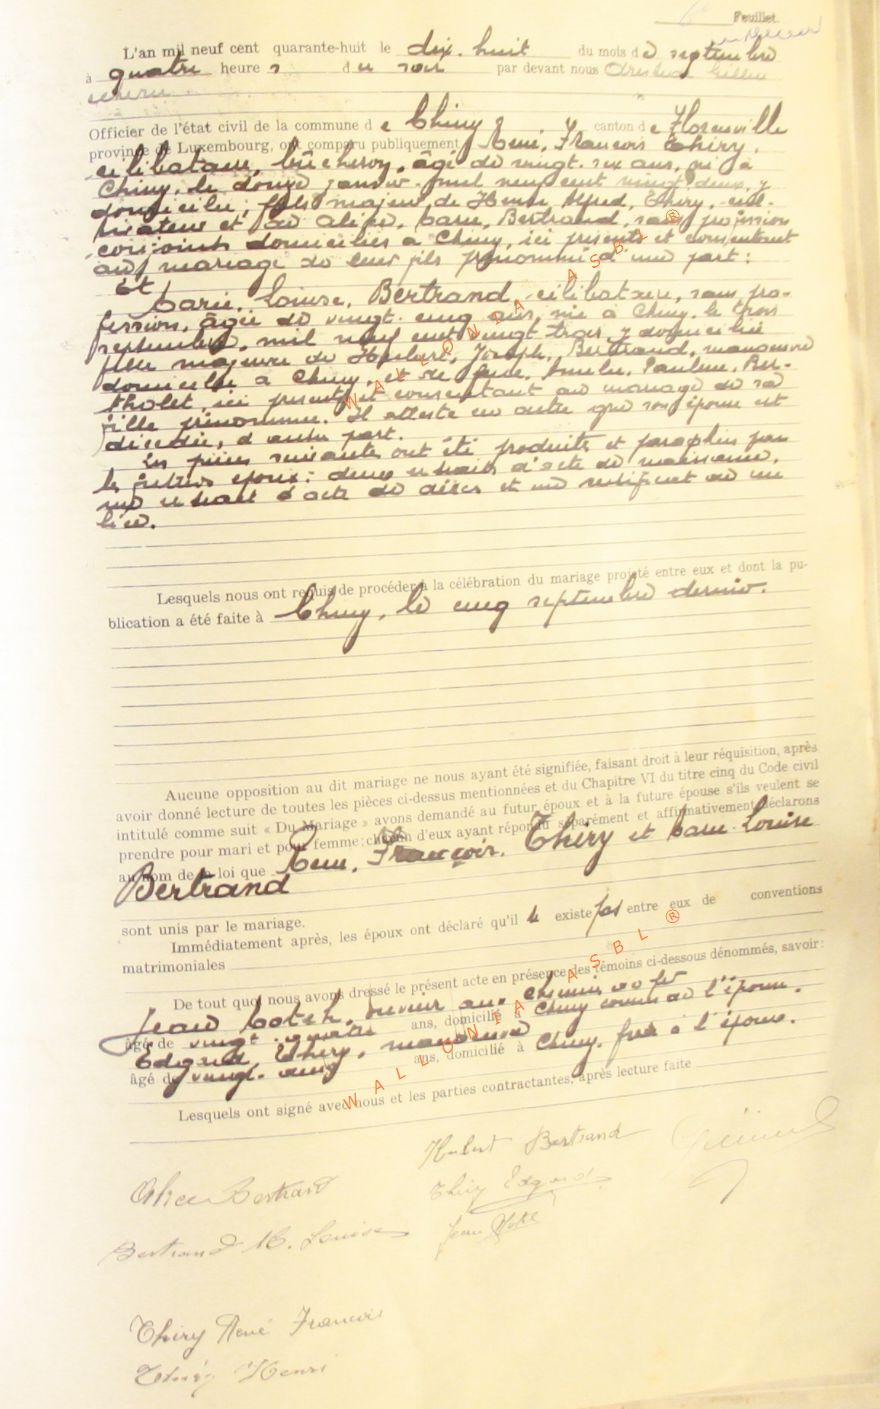 Feuillet
L'an mil neuf cent quarante-huit le dix-huit du mois de septembre
à quatre heures du soir par devant nous
Officier de l'état civil de la commune de Chiny canton de Florenville
province de Luxembourg, ont comparu publiquement René, François Thiry,
célibataire, bûcheron, âgé de vingt-six ans, né à
Chiny, le douze janvier mil neuf cent vingt-deux, y
domicilié, fils majeur de Henri, Alfred, Thiry, cul-
tivateur et de Marie, Bertrand, sans profession
conjoints domiciliés à Chiny, ici présents et consentant
au mariage de leur fils prénommé d'une part;
Et
Marie, Louise, Bertrand, célibataire, sans pro-
fession, âgée de vingt-cinq ans, née à Chiny, le trois
septembre, mil neuf cent vingt trois, y domiciliée
fille majeure de Hubert, Joseph, Bertrand, manoeuvre
domicilié à Chiny, et de Pauline, Ber-
tholet, ici présent et consentant au mariage de sa
fille prénommée. Il atteste en outre que son épouse est
décédée, d'autre part.
Les pièces suivantes ont été produites et paraphées par
les futurs époux: deux extraits d'acte de naissance,
un extrait d'acte de décès et un certificat de mi
lice.
Lesquels nous ont requis de procéder à la célébration du mariage projeté entre eux et dont la pu-
blication a été faite à Chiny, le cinq septembre dernier.
Aucune opposition au dit mariage ne nous ayant été signifiée, faisant droit à leur réquisition, après
avoir donné lecture de toutes les pièces ci-dessus mentionnées et du Chapitre VI du titre cinq du Code civil
intitulé comme suit « Du Mariage » avons demandé au futur époux et à la future épouse s'ils veulent se
prendre pour mari et pour femme; chacun d'eux ayant répondu séparément et affirmativement, déclarons
au nom de la loi que René, François, Thiry et Marie Louise
Bertrand
sont unis par le mariage.
Immédiatement après, les époux ont déclaré qu'il n'existe pas entre eux de conventions
matrimoniales
De tout quoi nous avons dressé le présent acte en présence des témoins ci-dessous dénommés, savoir:
Jean ouvrier aux chemins de fer
âgé de vingt-quatre ans, domicilié à Chiny cousin de l'épouse.
Edgard, Thiry, manoeuvre
âgé de vingt-cinq ans, domicilié à Chiny, frère à l'époux.
Lesquels ont signé avec nous et les parties contractantes, après lecture faite
Hubert Bertrand
Alice Bertrand
Thiry Edgard
Bertrand M. Louise
Jean
Thiry René François
Thiry Henri
WALLONIA ASBL ®
WALLONIA ASBL ®